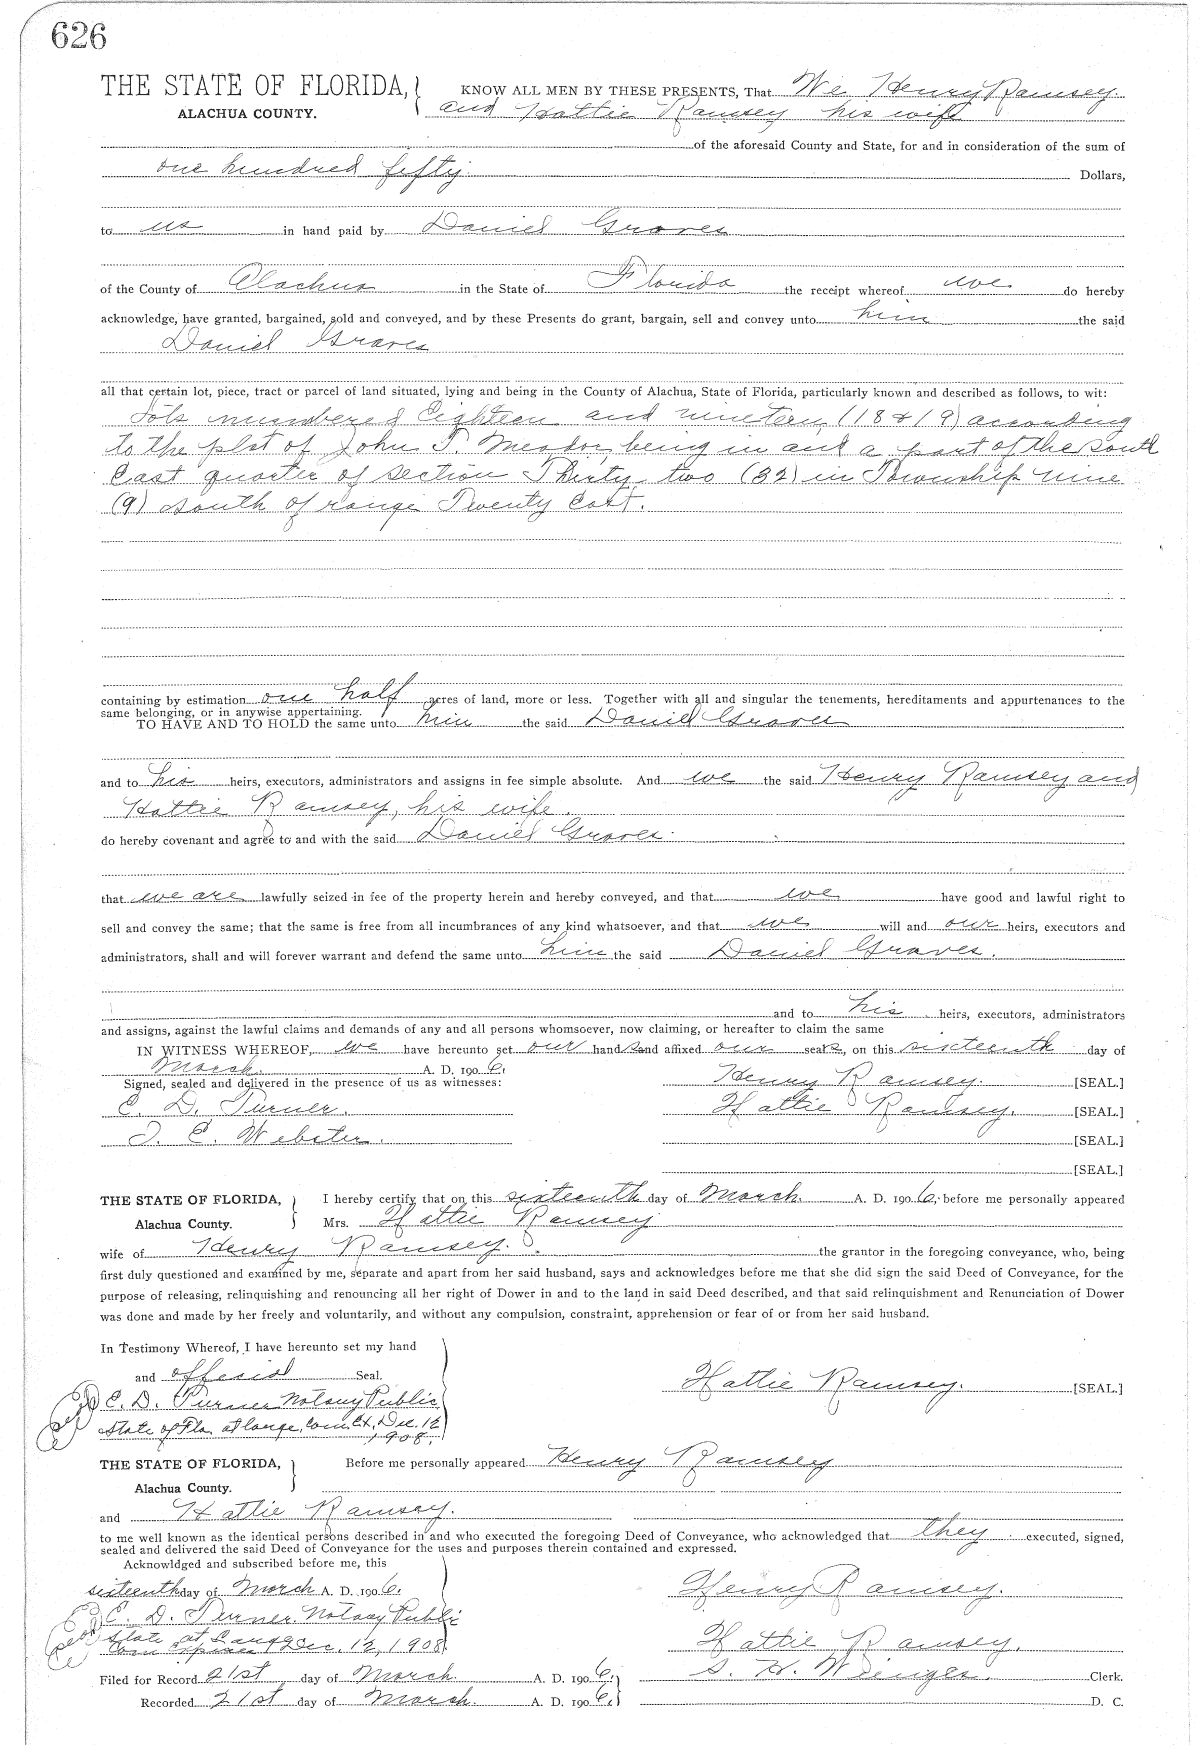 626
THE STATE OF FLORIDA, KNOW ALL MEN BY THESE PRESENTS, That We Henry Ramsey
ALACHUA COUNTY. and Hattie Ramsey his wife
of the aforesaid County and State, for and in consideration of the sum of
one hundred fifty Dollars,
to us in hand paid by Daniel Graves
of the County of Alachua in the State of Florida the receipt whereof we do hereby
acknowledge, have granted, bargained, sold and conveyed, and by these Presents do grant, bargain, sell and convey unto him the said
Daniel Graves
all that certain lot, piece, tract or parcel of land situated, lying and being in the County of Alachua, State of Florida, particularly known and described as follows, to wit:
Lots numbered Eighteen and nineteen (18 & 19) according
to the plat of John T. Meador, being in and a part of the south
East quarter of section Thirty two (32) in Township nine
(9) south of range Twenty East.
containing by estimation one half acres of land, more or less. Together with all and singular the tenements, hereditaments and appurtenances to the
same belonging, or in anywise appertaining.
TO HAVE AND TO HOLD the same unto him the said Daniel Graves
and to his heirs, executors, administrators and assigns in fee simple absolute. And we the said Henry Ramsey and
Hattie Ramsey, his wife.
do hereby covenant and agree to and with the said Daniel Graves.
that we are lawfully seized in fee of the property herein and hereby conveyed, and that we have good and lawful right to
sell and convey the same; that the same is free from all incumbrances of any kind whatsoever, and that we will and our heirs, executors and
administrators, shall and will forever warrant and defend the same unto him the said Daniel Graves.
and to his heirs, executors, administrators
and assigns, against the lawful claims and demands of any and all persons whomsoever, now claiming, or hereafter to claim the same
IN WITNESS WHEREOF, we have hereunto set our hands and affixed our seals, on this sixteenth day of
March. A. D. 1906.
Signed, sealed and delivered in the presence of us as witnesses: Henry Ramsey. [SEAL.]
E. D. Turner. Hattie Ramsey. [SEAL.]
J. E. Webster. [SEAL.]
[SEAL.]
THE STATE OF FLORIDA, I hereby certify that on this sixteenth day of March. A. D. 1906, before me personally appeared
Alachua County. Mrs. Hattie Ramsey
wife of Henry Ramsey. the grantor in the foregoing conveyance, who, being
first duly questioned and examined by me, separate and apart from her said husband, says and acknowledges before me that she did sign the said Deed of Conveyance, for the
purpose of releasing, relinquishing and renouncing all her right of Dower in and to the land in said Deed described, and that said relinquishment and Renunciation of Dower
was done and made by her freely and voluntarily, and without any compulsion, constraint, apprehension or fear of or from her said husband.
In Testimony Whereof, I have hereunto set my hand
and official Seal. Hattie Ramsey. [SEAL.]
Seal E. D. Turner Notary Public
State of Fla. at large, Com. Ex. Dec. 12
1908.
THE STATE OF FLORIDA, Before me personally appeared Henry Ramsey
Alachua County.
and Hattie Ramsey.
to me well known as the identical persons described in and who executed the foregoing Deed of Conveyance, who acknowledged that they executed, signed,
sealed and delivered the said Deed of Conveyance for the uses and purposes therein contained and expressed.
Acknowldged and subscribed before me, this
sixteenth day of March A. D. 1906. Henry Ramsey.
Seal E. D. Turner. Notary Public
State at Large
Com expires Dec. 12, 1908 Hattie Ramsey.
Filed for Record 21st day of March. A. D. 1906. S. H. Wienges. Clerk.
Recorded 21st day of March. A. D. 1906. D. C.